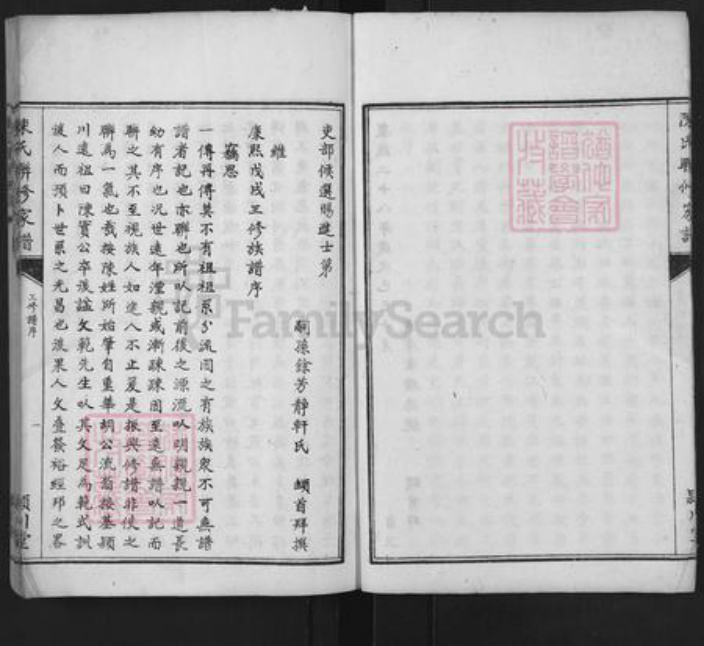 吏部候選賜進士第
嗣孫餘芳靜軒氏 頓首拜撰
維
康熙戊戌三修族譜序
竊思
一傳再傳莫不有祖祖系分流固之有族族衆不可無譜
譜者記也亦聯也所以記前後之源流以明親親一道長
幼有序也况世遠年湮親或漸疎疎固至遠無譜以記而
聯之其不至視族人如途人不止爰是振興修譜非使之
聯為一氣也哉按陳姓所始肇自重華胡公流翁接基潁
川遠祖曰陳寔公卒後諡文範先生以其文足為範式訓
後人而預卜世系之光昌也後果人文疊發裕經邦之畧
陳氏聯修家譜
三修譜序
一
潁川堂
陳氏聯修家譜
FamilySearch